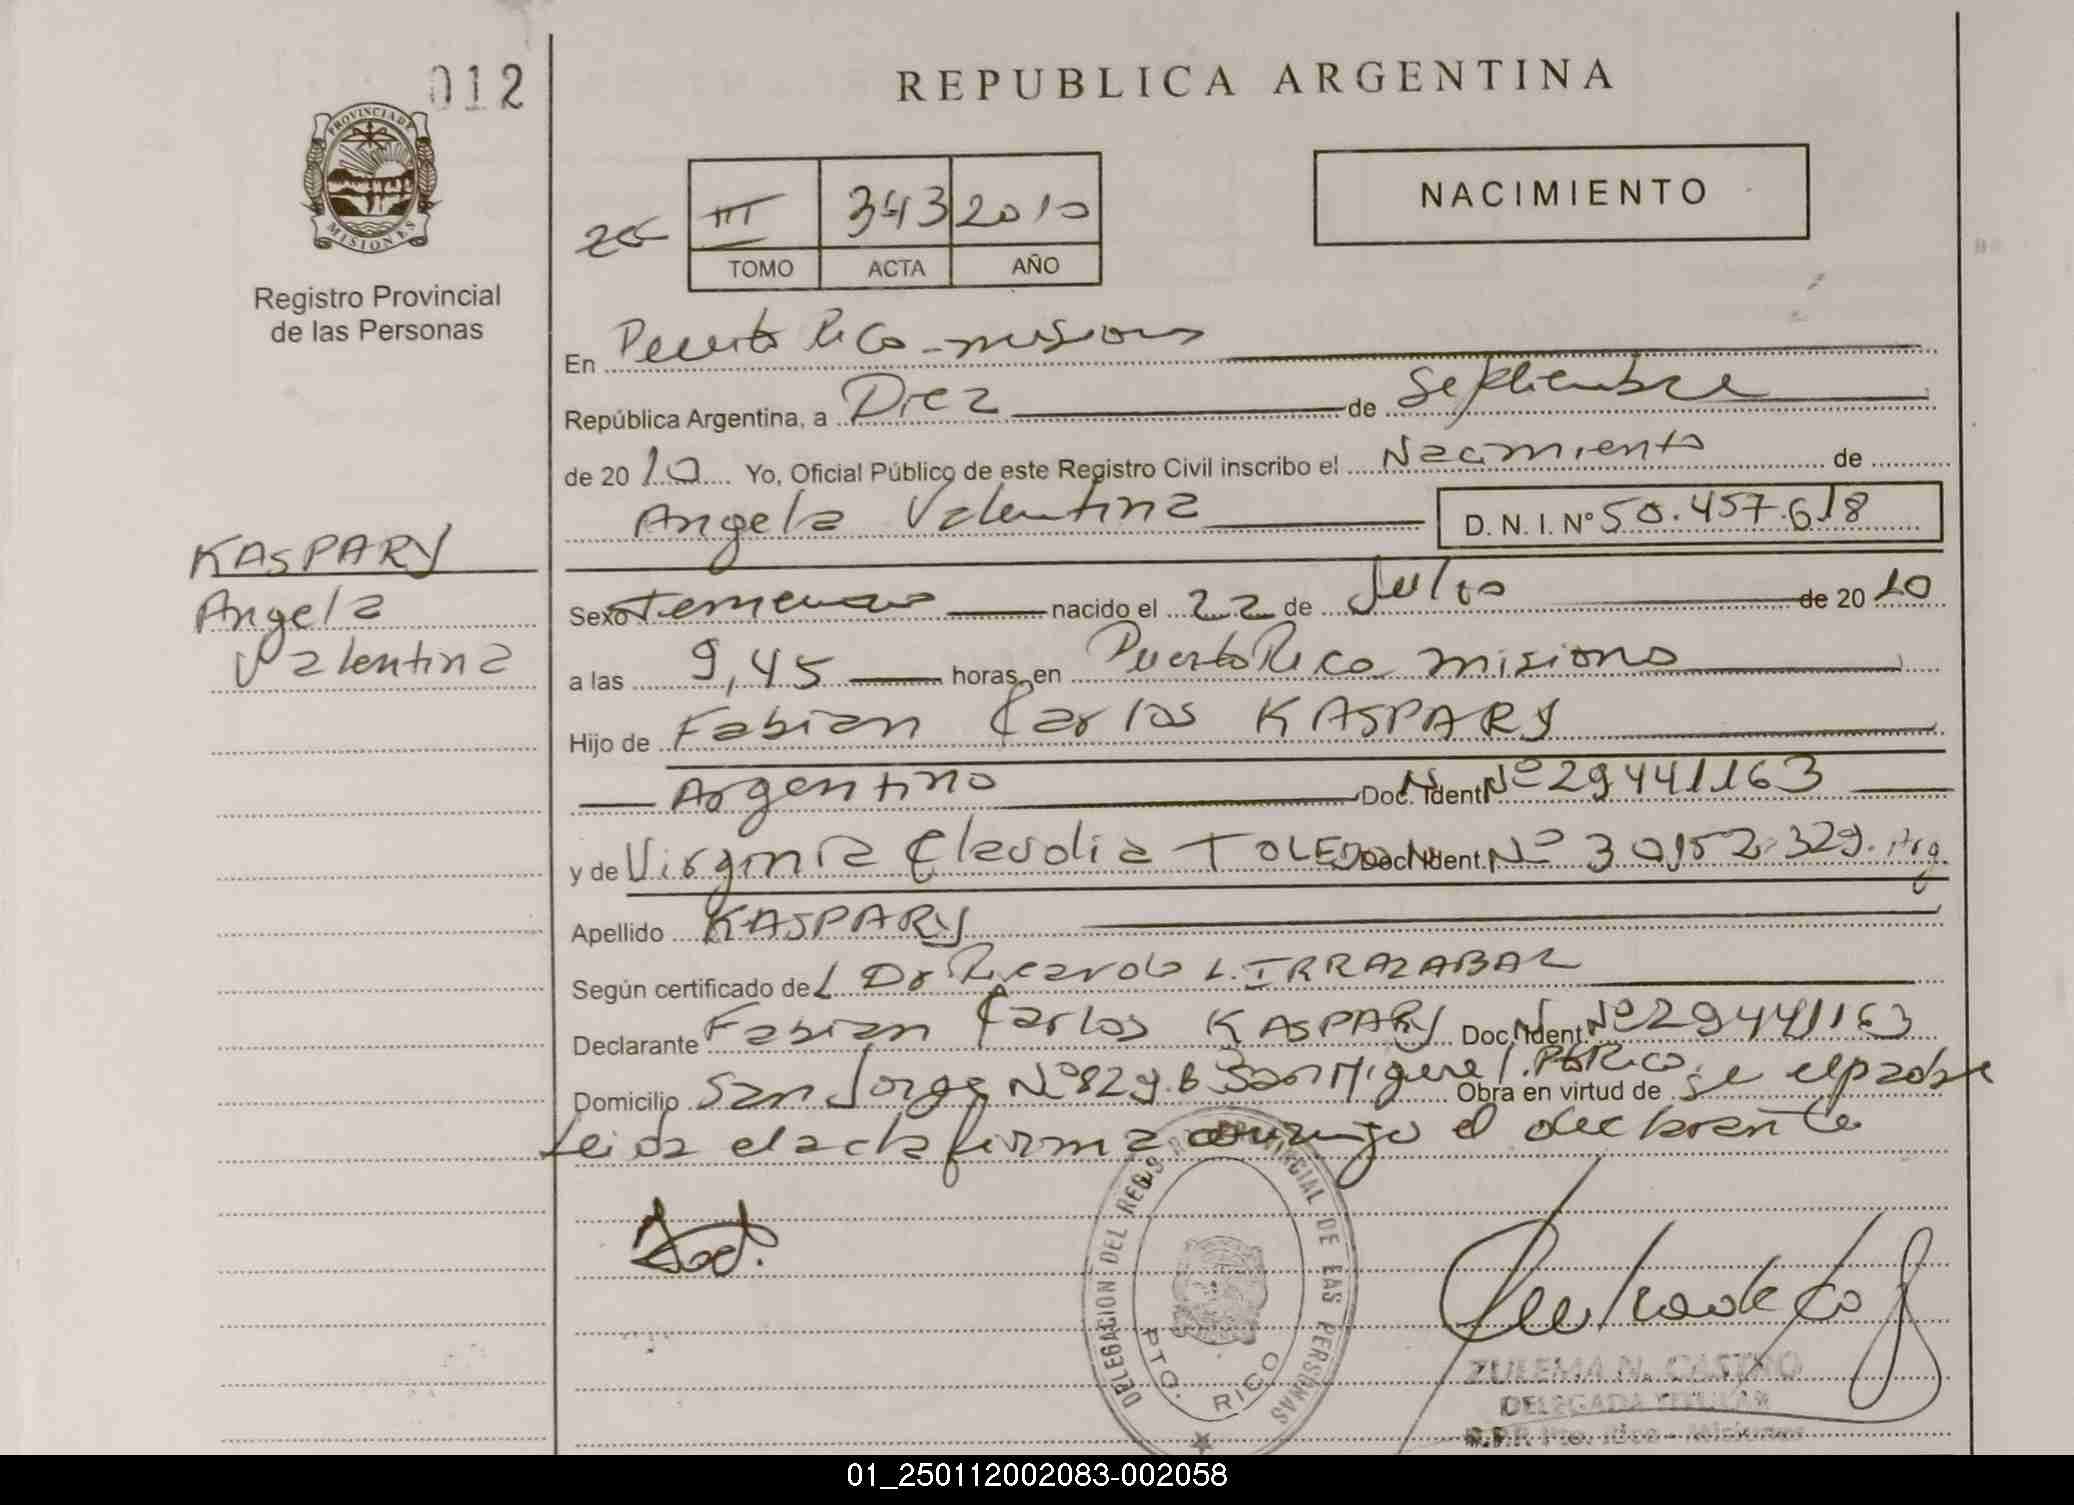 012
REPUBLICA ARGENTINA
PROVINCIA DE
MISIONES
Registro Provincial
de las Personas
III 343 2010
TOMO ACTA AÑO
NACIMIENTO
En Puerto Rico - misiones
República Argentina, a Diez de Septiembre
de 2010 Yo, Oficial Público de este Registro Civil inscribo el Nacimiento de
Angela Valentina D. N. I. Nº 50.457.618
KASPARY
Angela
Valentina
Sexo Femenino nacido el 22 de Julio de 2010
a las 9,45 horas, en Puerto Rico misiones
Hijo de Fabian Carlos KASPARY
Argentino Doc. Ident. Nº 29441163
y de Virginia Claudia TOLEDO Doc. Ident. Nº 30952.329. Arg.
Apellido KASPARY
Según certificado del Dr Ricardo L. IRRAZABAL
Declarante Fabian Carlos KASPARY Doc. Ident. Nº 29441163
Domicilio San Jorge Nº 829 B San Miguel Pto Rico. Obra en virtud de se el padre
Leida el acta firma conmigo el declarante
DELEGACION DEL REGISTRO PROVINCIAL DE LAS PERSONAS
PTO. RICO
ZULEMA N. CASTRO
DELEGADA TITULAR
R.P.P. Pto. Rico - Misiones
01_250112002083-002058